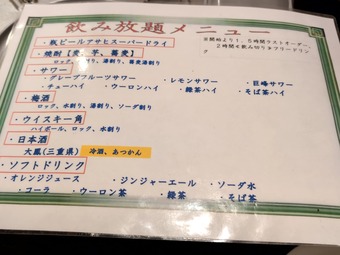 飲み放題メニュー
※開始より1、5時間ラストオーダー
2時間で飲み切りフリードリンク
・瓶ビールアサヒスーパードライ
・焼酎【麦、芋、蕎麦】
ロック、水割り、湯割り、蕎麦湯割り
・サワー
・グレープフルーツサワー ・レモンサワー ・巨峰サワー
・チューハイ ・ウーロンハイ ・緑茶ハイ ・そば茶ハイ
・梅酒
ロック、水割り、湯割り、ソーダ割り
・ウイスキー角
ハイボール、ロック、水割り
・日本酒
大鳳(三重県) 冷酒、あつかん
・ソフトドリンク
・オレンジジュース ・ジンジャーエール ・ソーダ水
・コーラ ・ウーロン茶 ・緑茶 ・そば茶